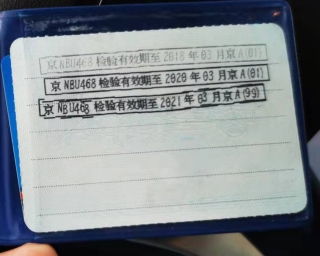 京NBU468检验有效期至2018年03月京A(01)
京NBU468检验有效期至2020年03月京A(01)
京NBU468检验有效期至2021年03月京A(99)